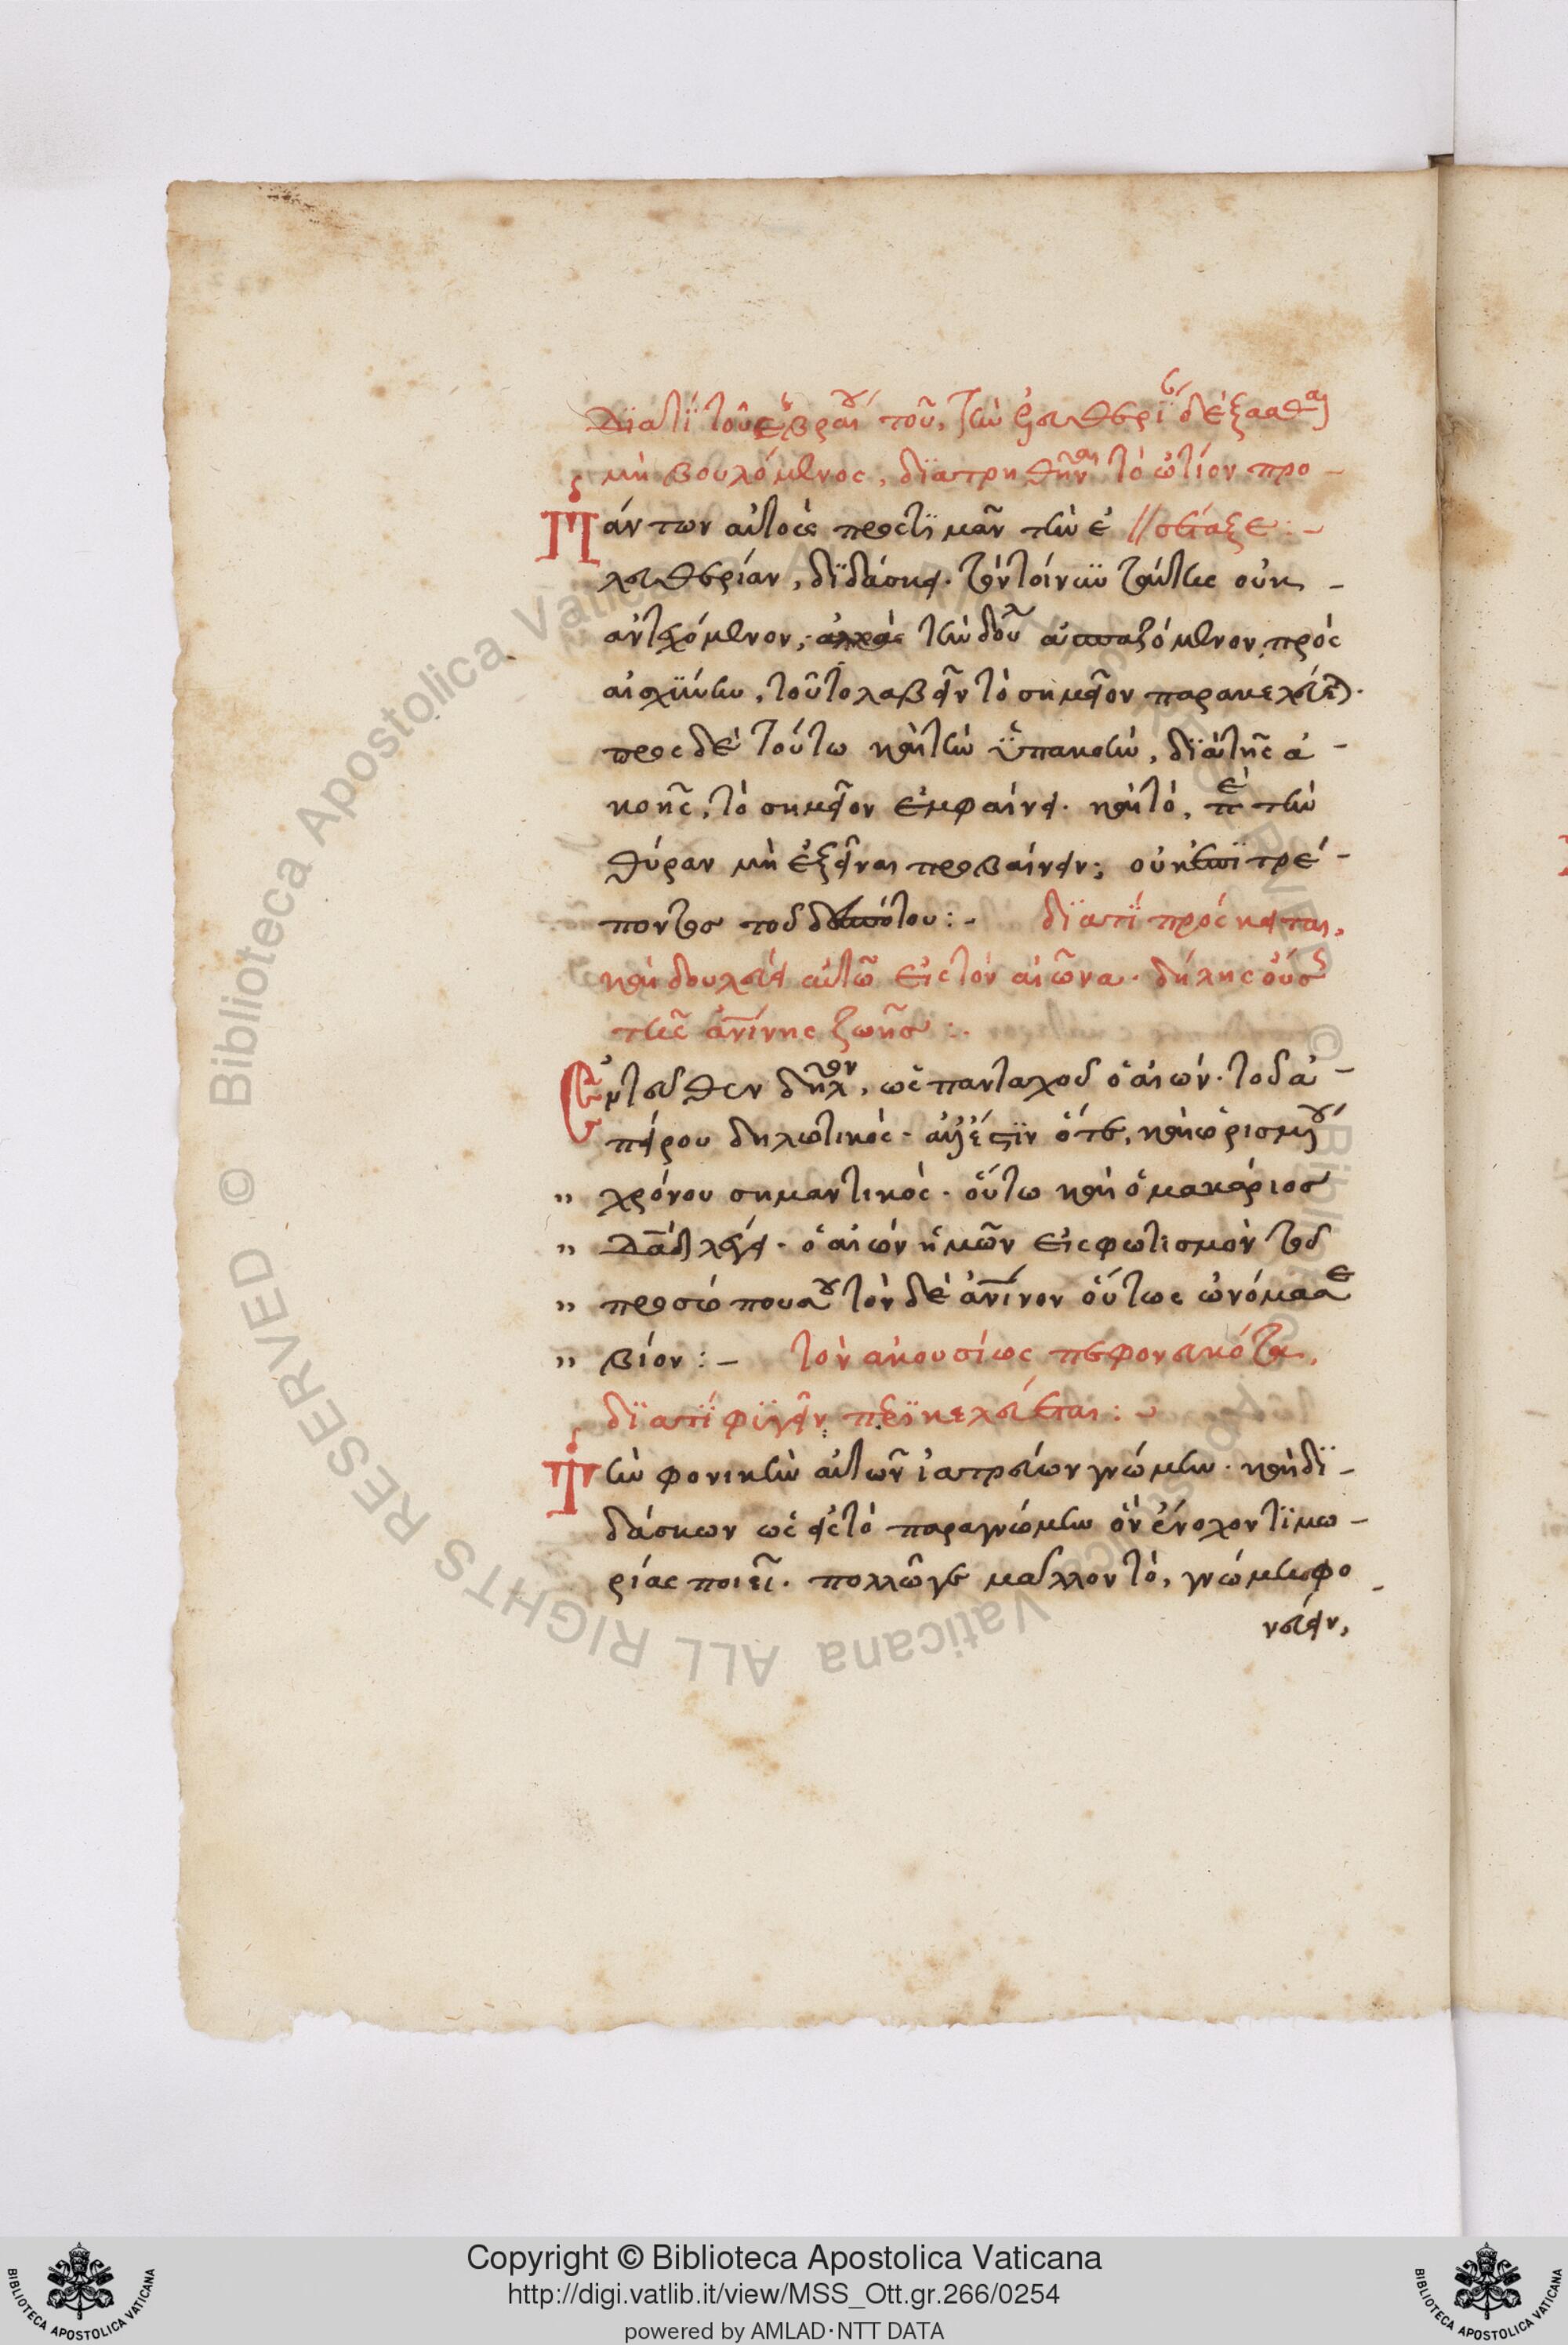 Διατί τοῦ ἑβραίου τοῦ, τὴν ἐλευθερίαν δέξασθαι
μὴ βουλόμενος, διατρηθῆναι τὸ ὠτίον προ-
Πάντων αὐτοὺς προτιμᾶν τὴν ἐ // σέταξε:-
λευθερίαν, διδάσκει. τὸν τοίνυν ταύτης οὐκ -
ἀντεχόμενον, τὴν δου ἀσπαζόμενον, πρὸς
αἰσχύνην, τοῦτο λαβεῖν τὸ σημεῖον παρακελεύεται.
προς δὲ τούτω καὶ τὴν ὑπακοὴν, διὰ τῆς ἀ -
κοῆς, τὸ σημεῖον ἐμφαίνει. καὶ τὸ, ἐπὶ τὴν
θύραν μὴ ἐξεῖναι προβαίνειν; οὐκ ἐπιτρέ -
ποντος τοῦ δεσπότου:- διατί πρόσκειται,
καὶ δουλεύει αὐτῶ εἰς τὸν αἰῶνα. δήλης οὔσης
τῆς ἀνίνης ζωῆς:.
Ἐντεῦθεν δῆλον, ὡς πανταχοῦ ὁ αἰών. τοῦ ἀ -
πείρου δηλωτικὸς. ἀλλ' ἔστιν ὅτε, καὶ ὡρισμένου
" χρόνου σημαντικὸς. οὕτω καὶ ὁ μακάριος
" Δᾱδ λέγει. ὁ αἰών ἡμῶν εἰς φωτισμὸν τοῦ
" προσώπου σου τὸν δὲ ἀνίνον οὕτως ὠνόμασε
" βίον:- τὸν ἀκουσίως πεφονευκότα,
διατί φυγεῖν περικελεύεται:-
Τὴν φονικὴν αὐτῶν ἰατρεύων γνώμην. καὶ δι -
δάσκων ὡς εἰ τὸ παρὰ γνώμην ὂν ἔνοχον τιμω -
ρίας ποιεῖ. πολλῶ γε μᾶλλον τὸ, γνώμη φο -
νεύειν,
Copyright © Biblioteca Apostolica Vaticana
http://digi.vatlib.it/view/MSS_Ott.gr.266/0254
powered by AMLAD·NTT DATA
BIBLIOTECA APOSTOLICA VATICANA
BIBLIOTECA APOSTOLICA VATICANA